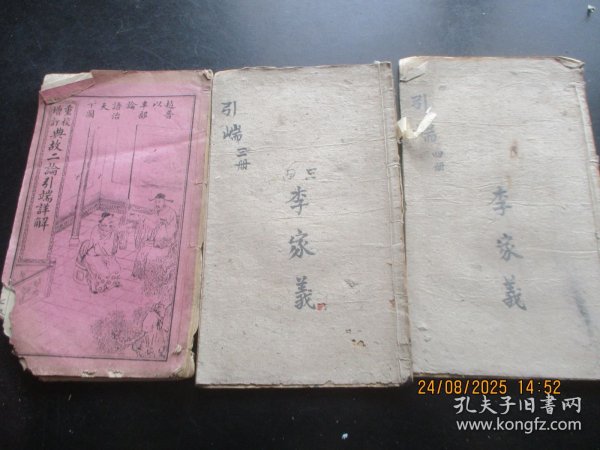 趙普
以
半部
論
語治
天
下圖
重校
增訂
典故二論引端詳解
引端 三册
李家義
引端 四册
李家義
24/08/2025 14:52
孔夫子旧书网
www.kongfz.com